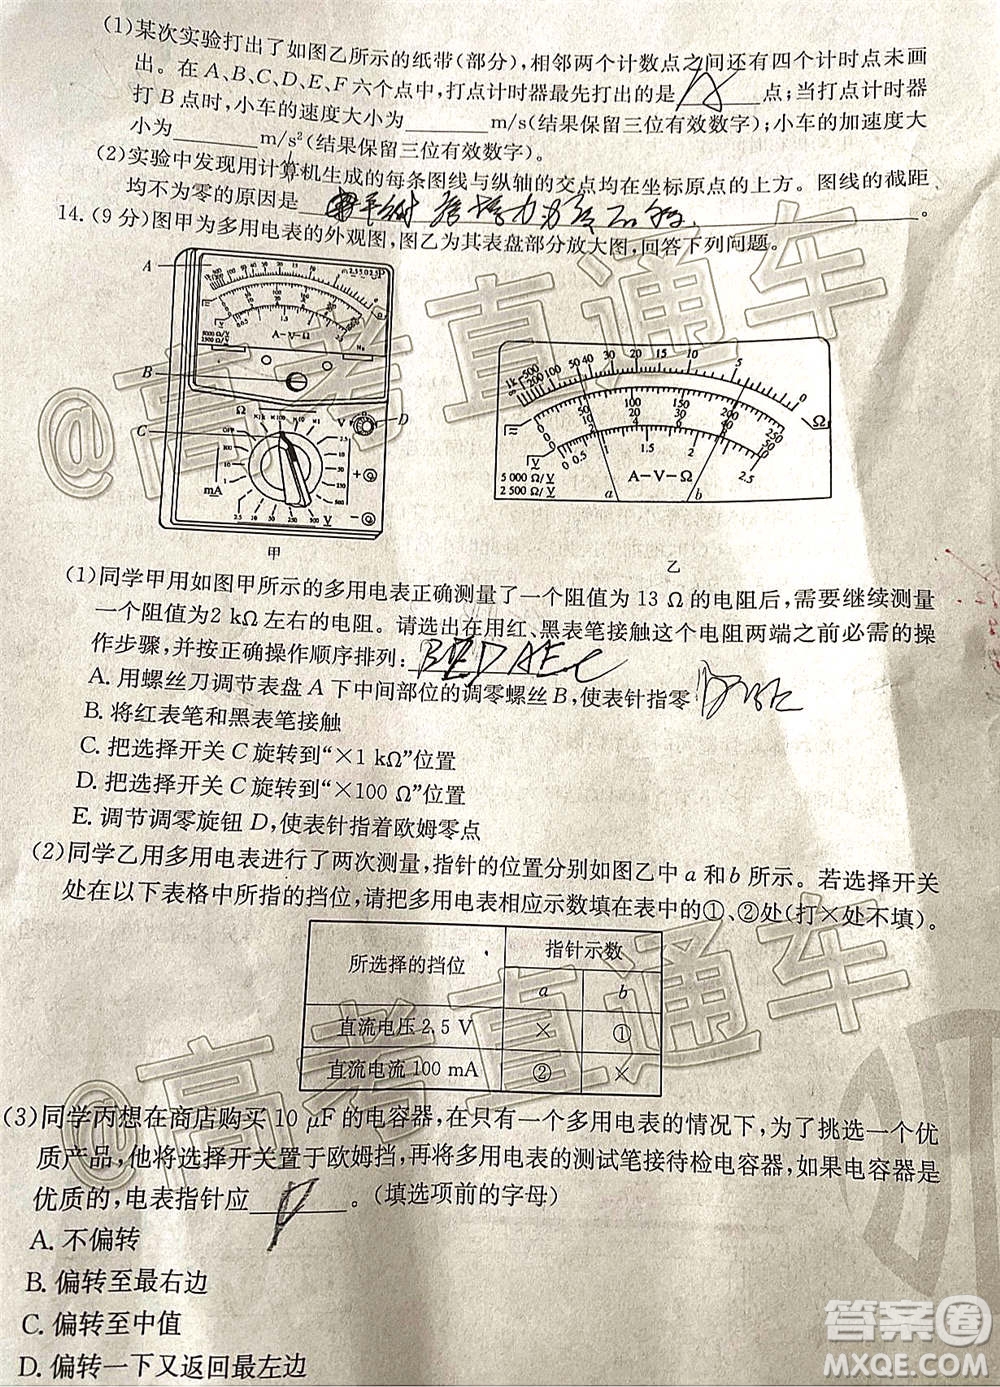 (1)某次实验打出了如图乙所示的纸带(部分),相邻两个计数点之间还有四个计时点未画
出。在A、B、C、D、E、F六个点中,打点计时器最先打出的是 A 点;当打点计时器
打B点时,小车的速度大小为________m/s(结果保留三位有效数字);小车的加速度大
小为________m/s²(结果保留三位有效数字)。
(2)实验中发现用计算机生成的每条图线与纵轴的交点均在坐标原点的上方。图线的截距
均不为零的原因是________。
14.(9分)图甲为多用电表的外观图,图乙为其表盘部分放大图,回答下列问题。
A
B
C
D
Ω
×1k ×100 ×10 ×1
OFF
100
10
1
mA
2.5 10 50 250 500 V
V
2.5
10
50
250
500
+
−
5000 Ω/V
2500 Ω/V
A-V-Ω
甲
1k 500 200 100 50 40 30 20 15 10 5 0 Ω
0 50 100 150 200 250
0 10 20 30 40 50
0 0.5 1 1.5 2 2.5
5 000 Ω/V
2 500 Ω/V
A-V-Ω
a b
乙
(1)同学甲用如图甲所示的多用电表正确测量了一个阻值为13 Ω的电阻后,需要继续测量
一个阻值为2 kΩ左右的电阻。请选出在用红、黑表笔接触这个电阻两端之前必需的操
作步骤,并按正确操作顺序排列:
A. 用螺丝刀调节表盘A下中间部位的调零螺丝B,使表针指零
B. 将红表笔和黑表笔接触
C. 把选择开关C旋转到“×1 kΩ”位置
D. 把选择开关C旋转到“×100 Ω”位置
E. 调节调零旋钮D,使表针指着欧姆零点
(2)同学乙用多用电表进行了两次测量,指针的位置分别如图乙中a和b所示。若选择开关
处在以下表格中所指的挡位,请把多用电表相应示数填在表中的①、②处(打×处不填)。
所选择的挡位 指针示数
a b
直流电压2.5 V × ①
直流电流100 mA ② ×
(3)同学丙想在商店购买10 μF的电容器,在只有一个多用电表的情况下,为了挑选一个优
质产品,他将选择开关置于欧姆挡,再将多用电表的测试笔接待检电容器,如果电容器是
优质的,电表指针应 D 。(填选项前的字母)
A. 不偏转
B. 偏转至最右边
C. 偏转至中值
D. 偏转一下又返回最左边
@高考直通车
@高考直通车
答案圈
MXQE.COM